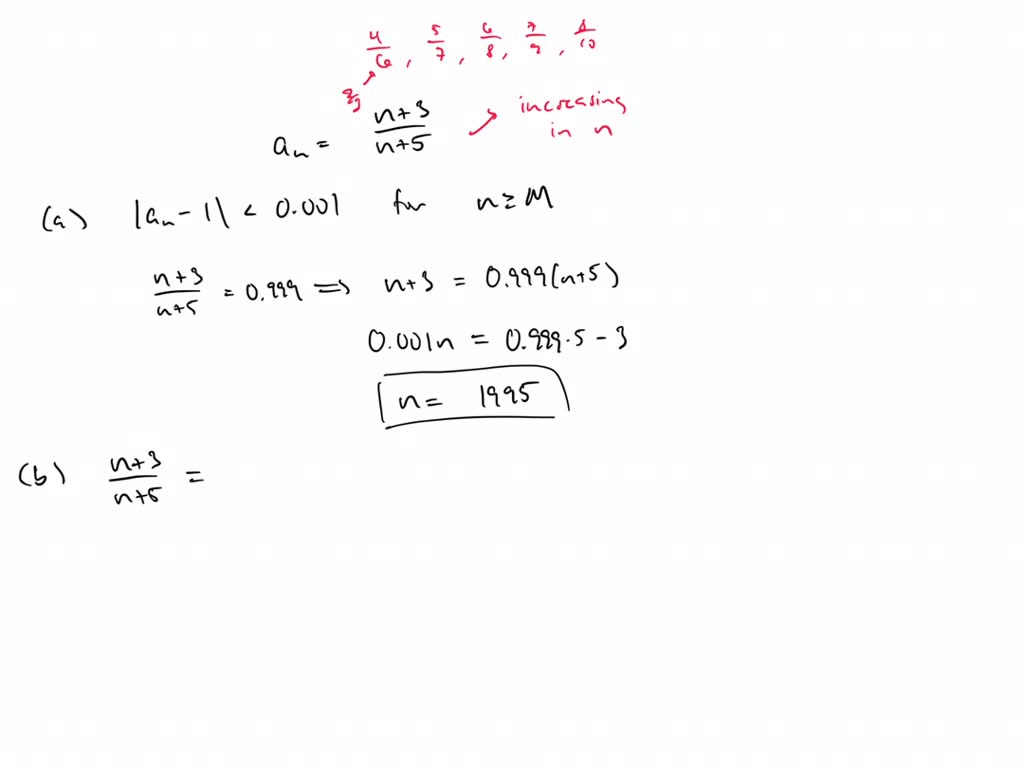 4/6, 5/7, 6/8, 7/9, 8/10
2/3
aₙ = (n+3)/(n+5) → increasing in n
(a) |aₙ - 1| < 0.001 for n ≥ M
(n+3)/(n+5) = 0.999 ⟹ n+3 = 0.999(n+5)
0.001n = 0.999·5 - 3
n = 1995
(b) (n+3)/(n+5) =